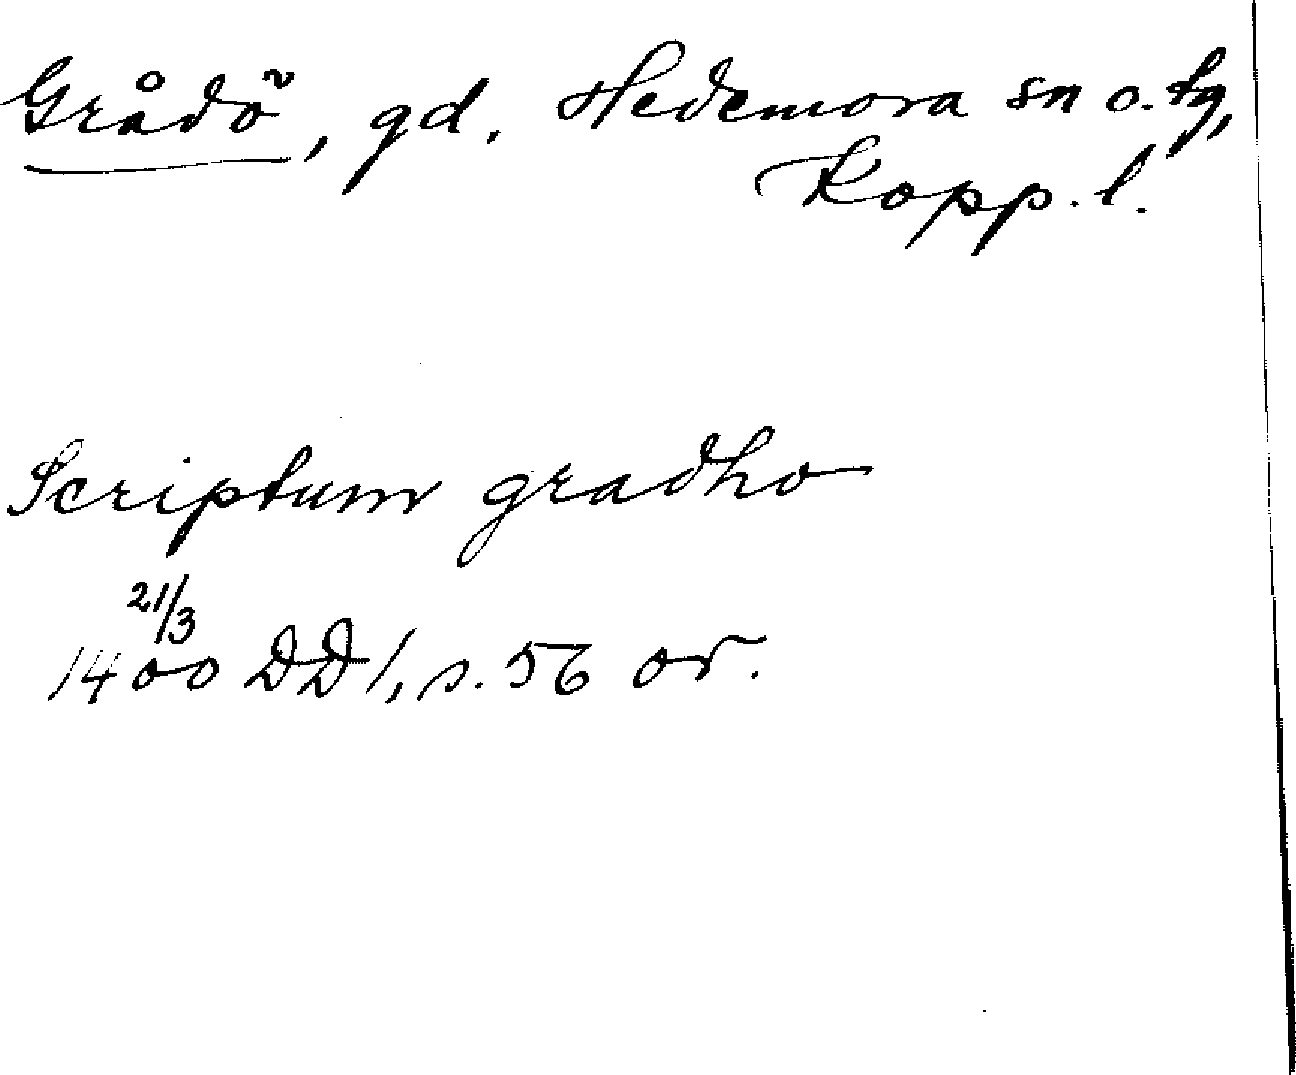 Grådö, gd, Hedemora sn o. tg,
Kopp. l.
Scriptum gradho
21/3
1400 DD 1, s. 56 or.